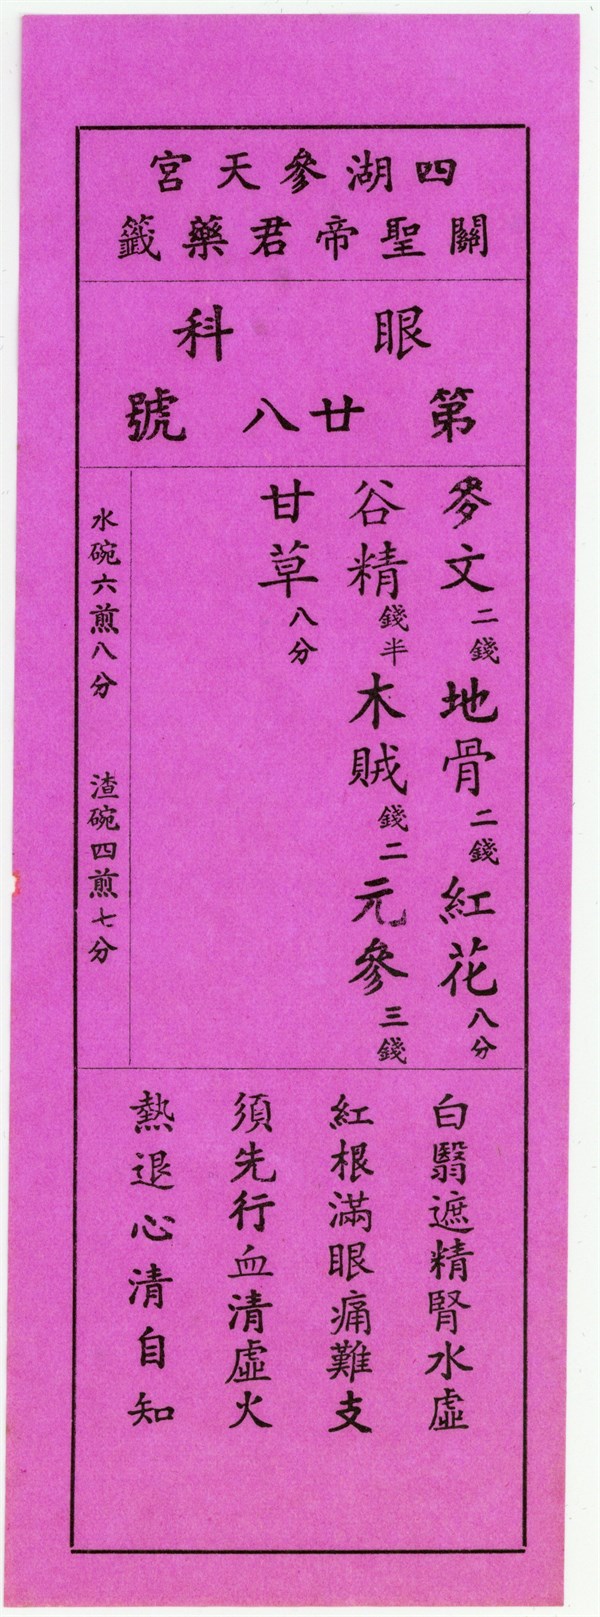 四湖參天宮
關聖帝君藥籤
眼科
第廿八號
麥文二錢地骨二錢紅花八分
谷精錢半木賊錢二元參三錢
甘草八分
水碗六煎八分 渣碗四煎七分
白翳遮精腎水虛
紅根滿眼痛難支
須先行血清虛火
熱退心清自知